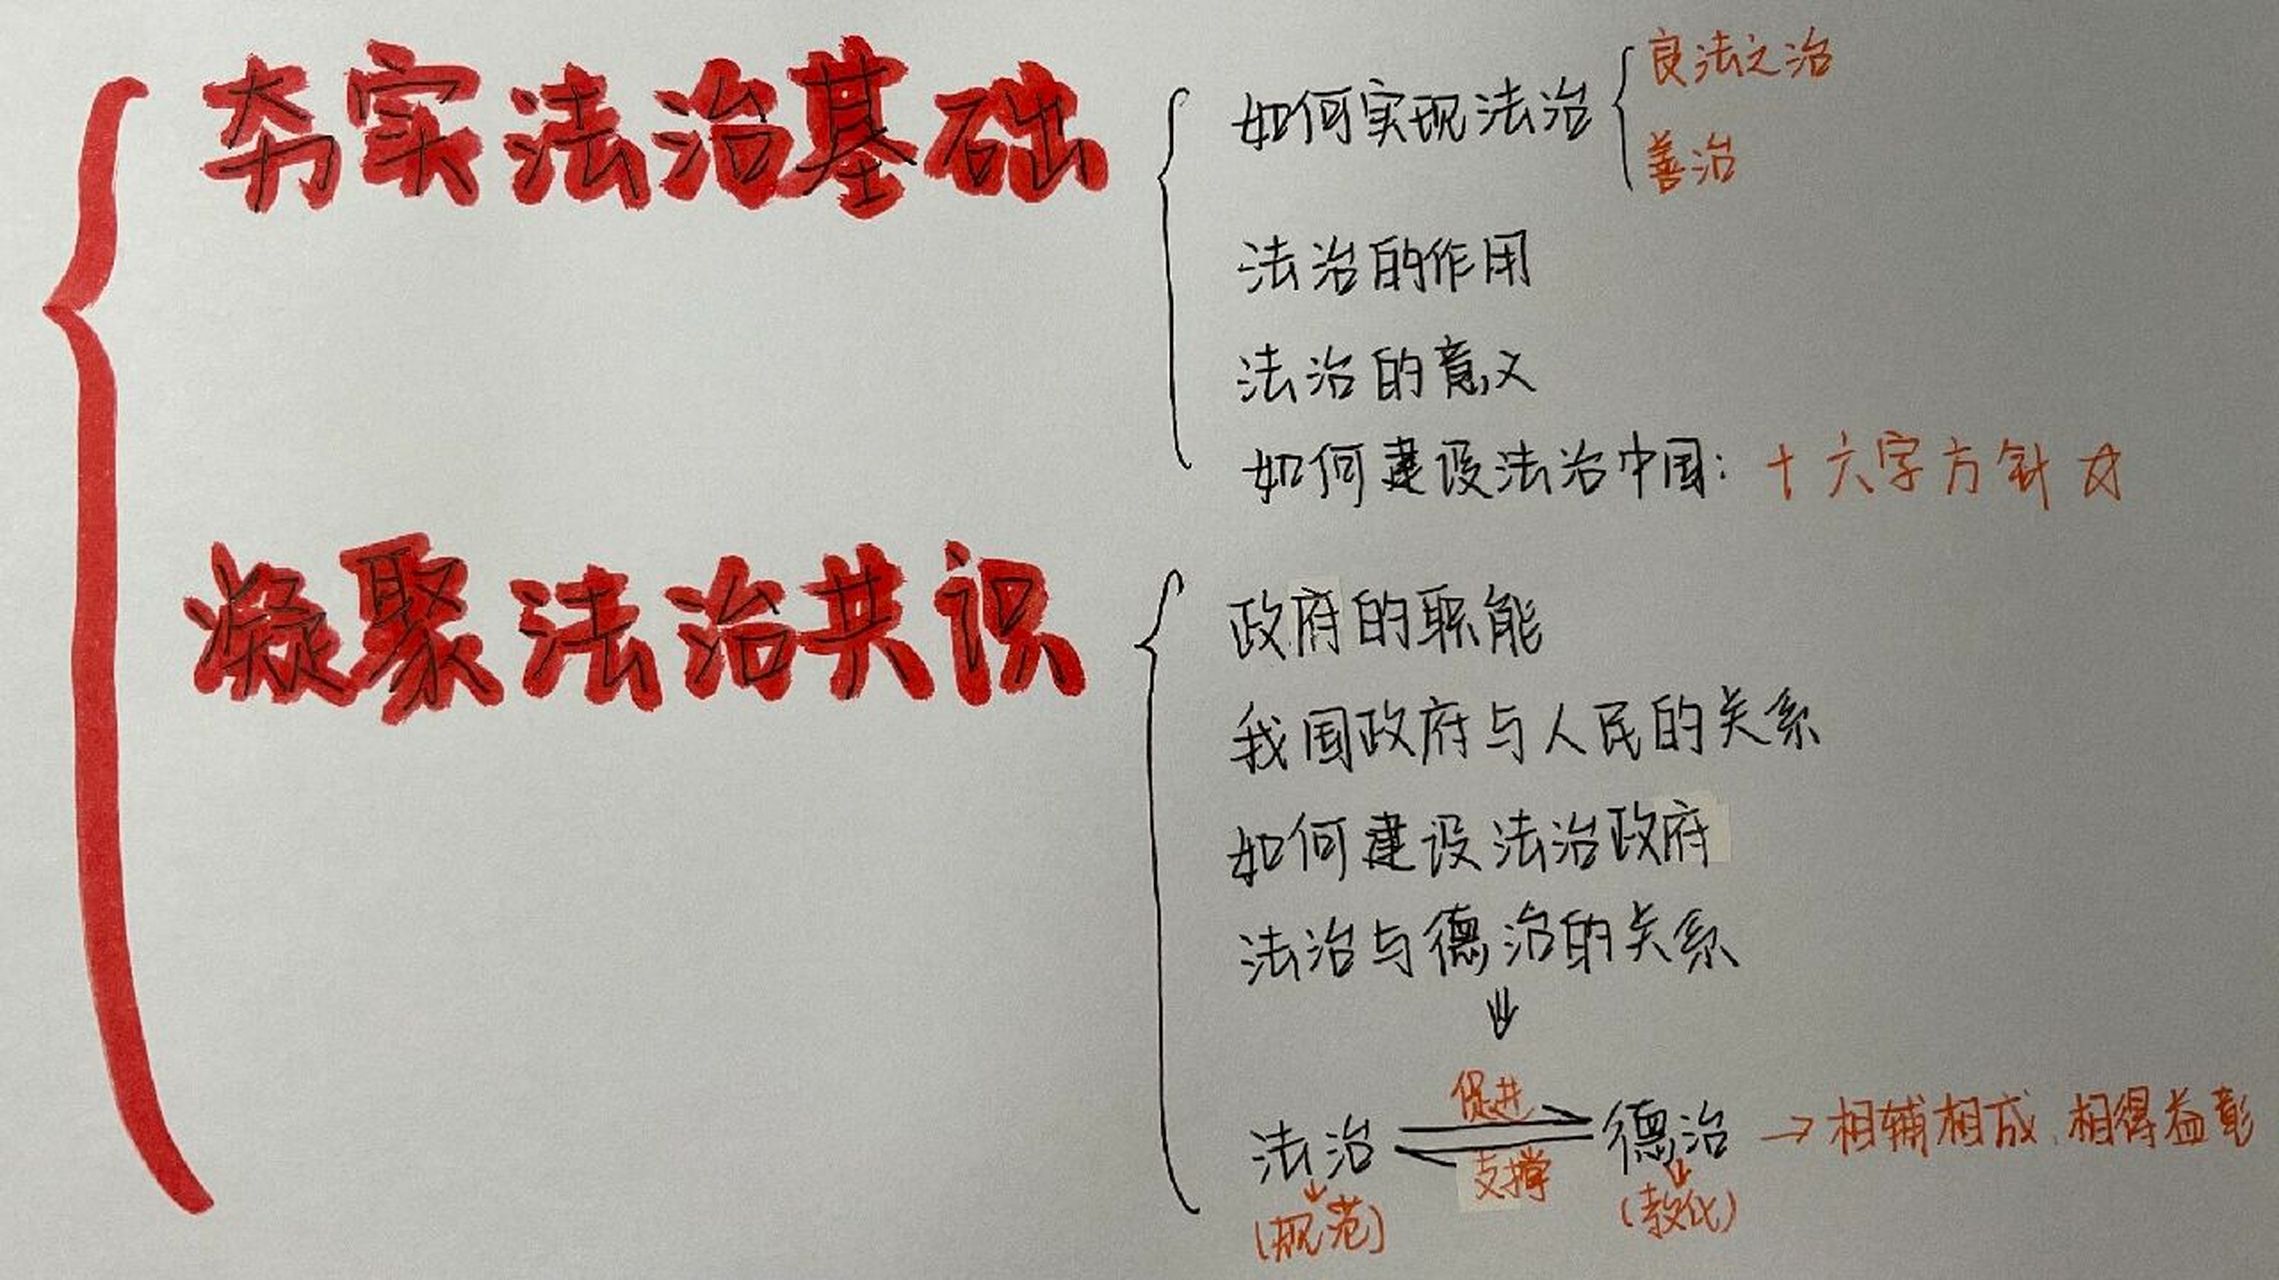 夯实法治基础
如何实现法治
良法之治
善治
法治的作用
法治的意义
如何建设法治中国：十六字方针☆
凝聚法治共识
政府的职能
我国政府与人民的关系
如何建设法治政府
法治与德治的关系
促进
法治 德治 → 相辅相成、相得益彰
支撑
(规范) (教化)